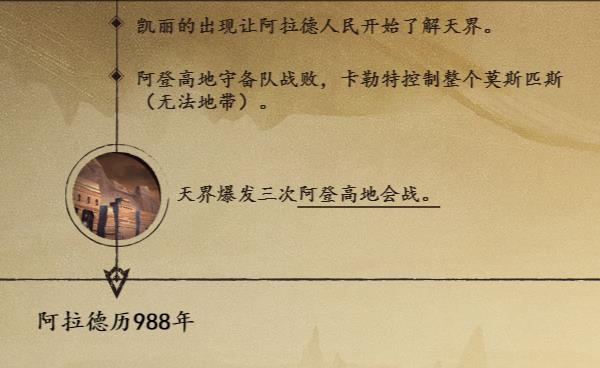 凯丽的出现让阿拉德人民开始了解天界。
阿登高地守备队战败，卡勒特控制整个莫斯匹斯
（无法地带）。
天界爆发三次阿登高地会战。
阿拉德历988年